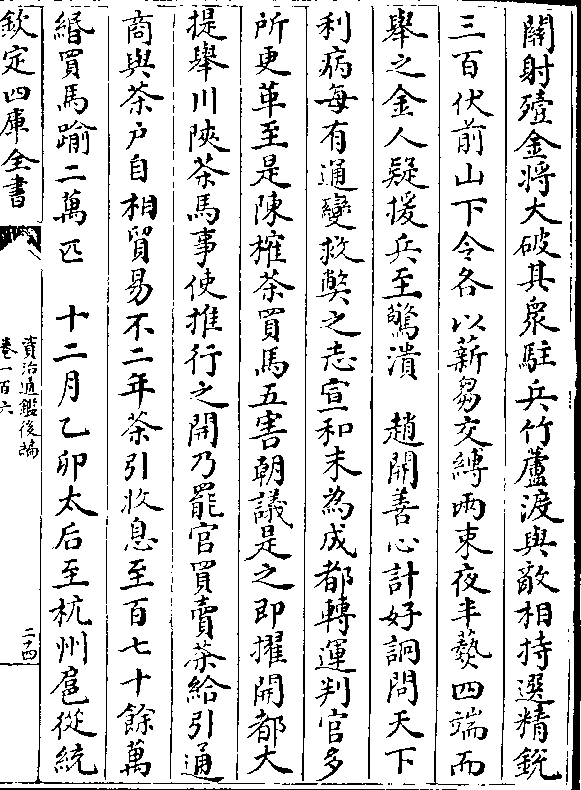 關射殪金將大破其衆駐兵竹蘆渡與敵相持選精鋭
三百伏前山下令各以薪芻交縛兩束夜半爇四端而
舉之金人疑援兵至驚潰　趙開善心計好詗問天下
利病每有通變救弊之志宣和末為成都轉運判官多
所更革至是陳𣙜茶買馬五害朝議是之即擢開都大
提舉川陜茶馬事使推行之開乃罷官買賣茶給引通
商與茶户自相貿易不二年茶引收息至百七十餘萬
緡買馬踰二萬匹　十二月乙卯太后至杭州扈從統
欽定四庫全書
資治通鑑後編
卷一百六
二十四